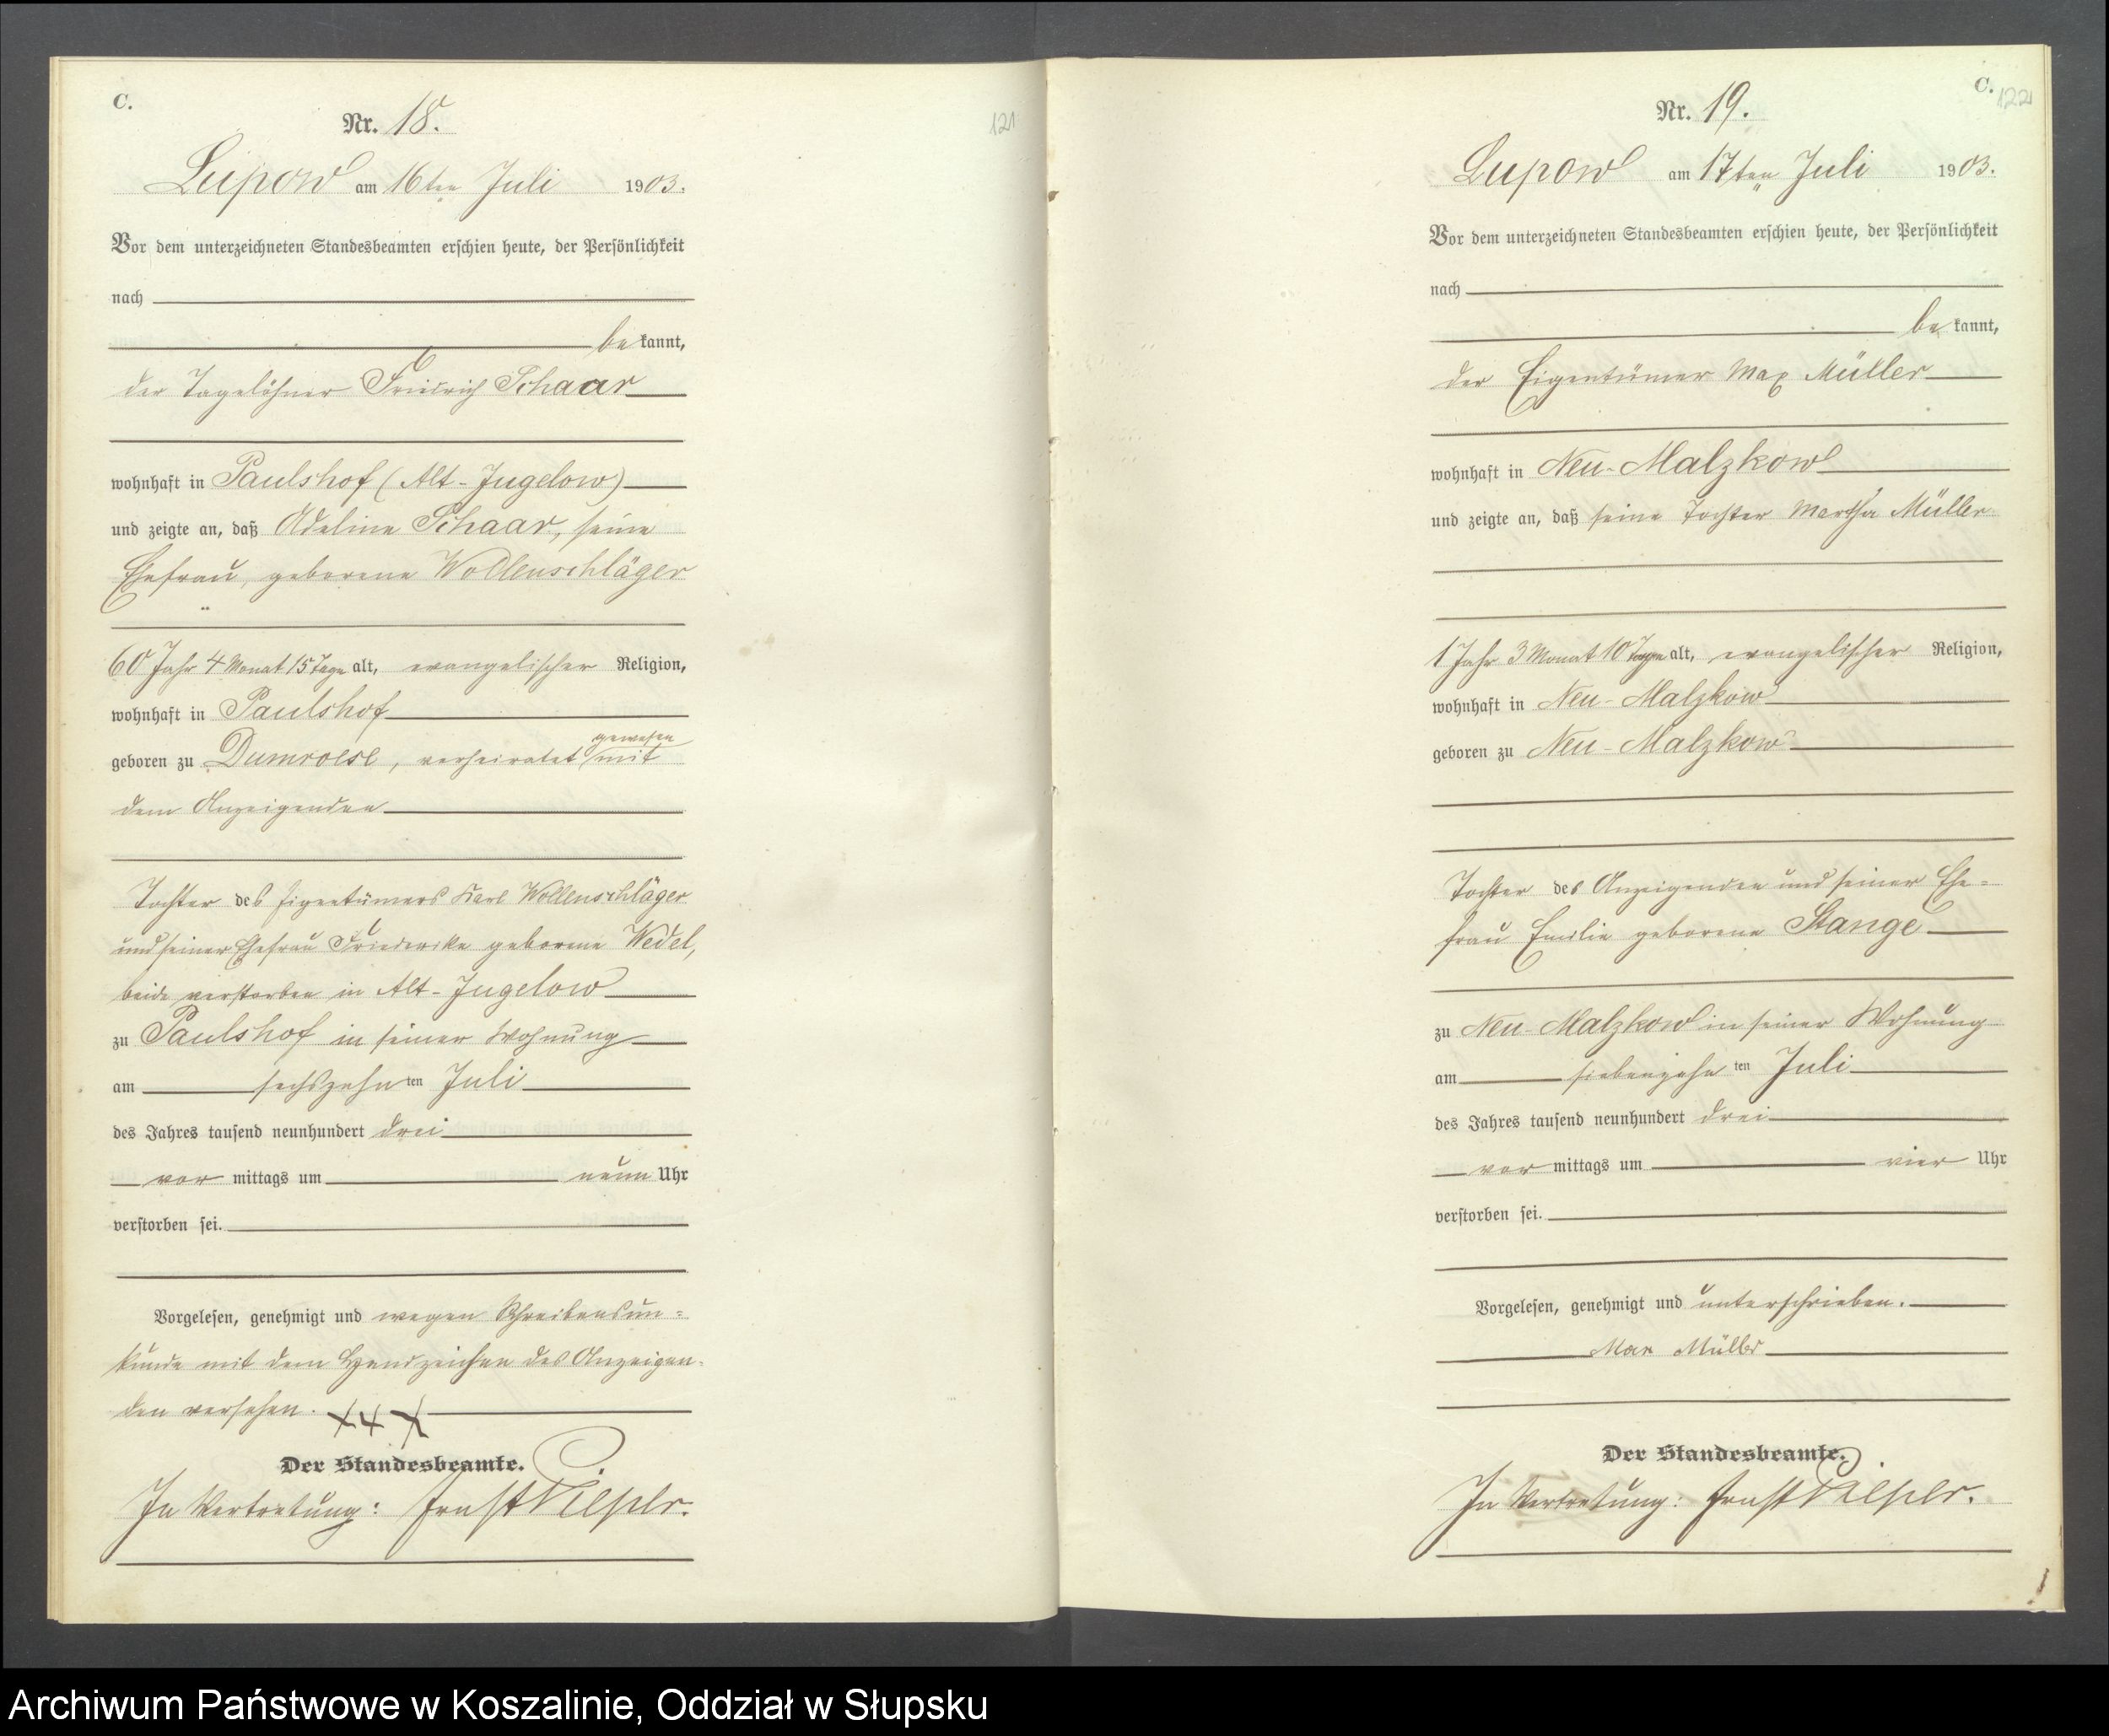 C.
121
Nr. 18.
Lupow am 16ten Juli 1903.
Vor dem unterzeichneten Standesbeamten erschien heute, der Persönlichkeit
nach
bekannt,
der Tagelöhner Friedrich Schaar
wohnhaft in Paulshof (Alt-Jugelow)
und zeigte an, daß Adeline Schaar, seine
Ehefrau, geborene Wollenschläger
60 Jahr 4 Monat 15 Tage alt, evangelischer Religion,
wohnhaft in Paulshof
gewesen
geboren zu Dumroese, verheiratet mit
dem Anzeigenden
Tochter des Eigentümers Karl Wollenschläger
und seiner Ehefrau Friederike geborene Wedel,
beide verstorben in Alt-Jugelow
zu Paulshof in seiner Wohnung
am sechszehnten Juli
des Jahres tausend neunhundert drei
vormittags um neun Uhr
verstorben sei.
Vorgelesen, genehmigt und wegen Schreibensun=
kunde mit dem Handzeichen des Anzeigen-
den versehen. +++
Der Standesbeamte.
In Vertretung: Ernst Pieper.
C.
122
Nr. 19.
Lupow am 17ten Juli 1903.
Vor dem unterzeichneten Standesbeamten erschien heute, der Persönlichkeit
nach
bekannt,
der Eigentümer Max Müller
wohnhaft in Neu-Malzkow
und zeigte an, daß seine Tochter Martha Müller
1 Jahr 3 Monat 10 Tage alt, evangelischer Religion,
wohnhaft in Neu-Malzkow
geboren zu Neu-Malzkow
Tochter des Anzeigenden und seiner Ehe=
frau Emilie geborene Stange
zu Neu-Malzkow in seiner Wohnung
am siebenzehnten Juli
des Jahres tausend neunhundert drei
vormittags um vier Uhr
verstorben sei.
Vorgelesen, genehmigt und unterschrieben.
Max Müller
Der Standesbeamte.
In Vertretung: Ernst Pieper.
Archiwum Państwowe w Koszalinie, Oddział w Słupsku